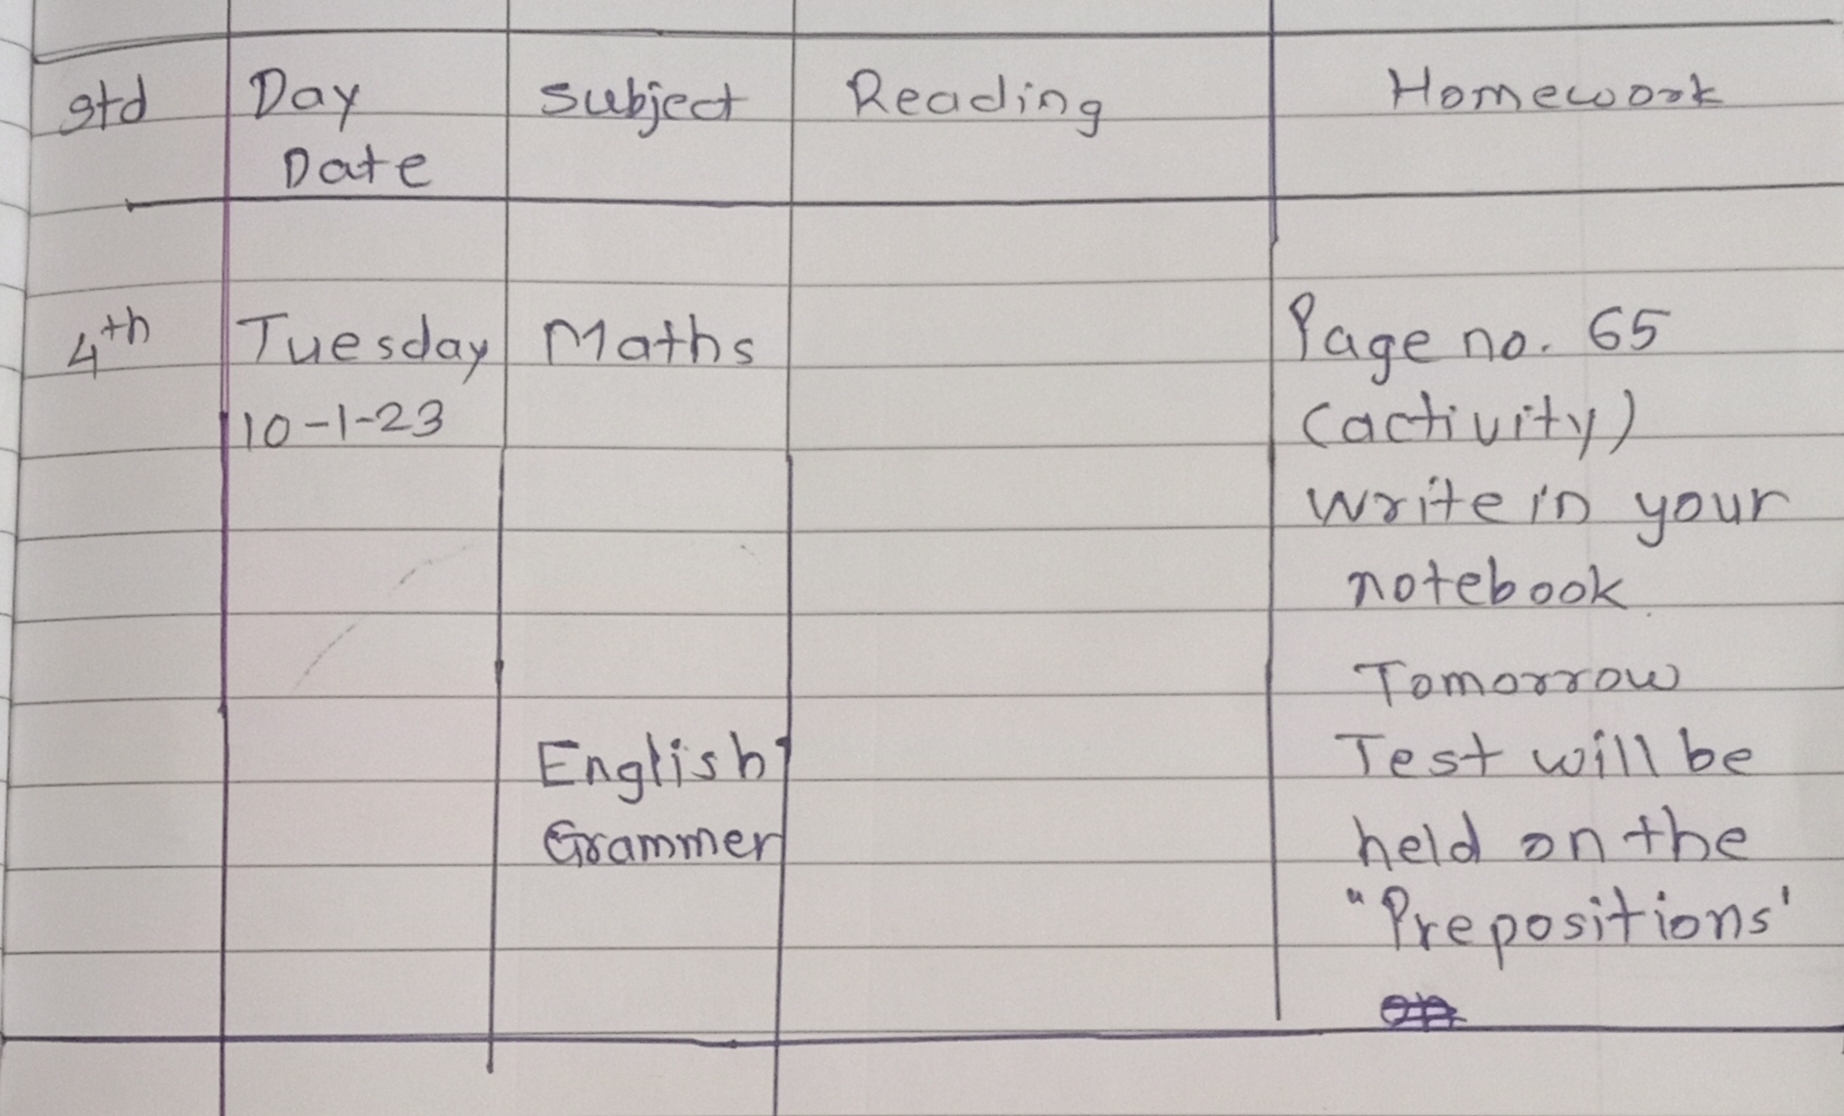 std Day Subject Reading Homework
Date
4th Tuesday Maths Page no. 65
10-1-23 (activity)
write in your
notebook
Tomorrow
English Test will be
Grammer held on the
"Prepositions'